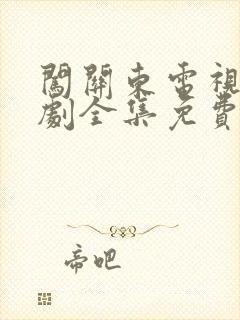 闖關東電視
劇全集免費
帝吧